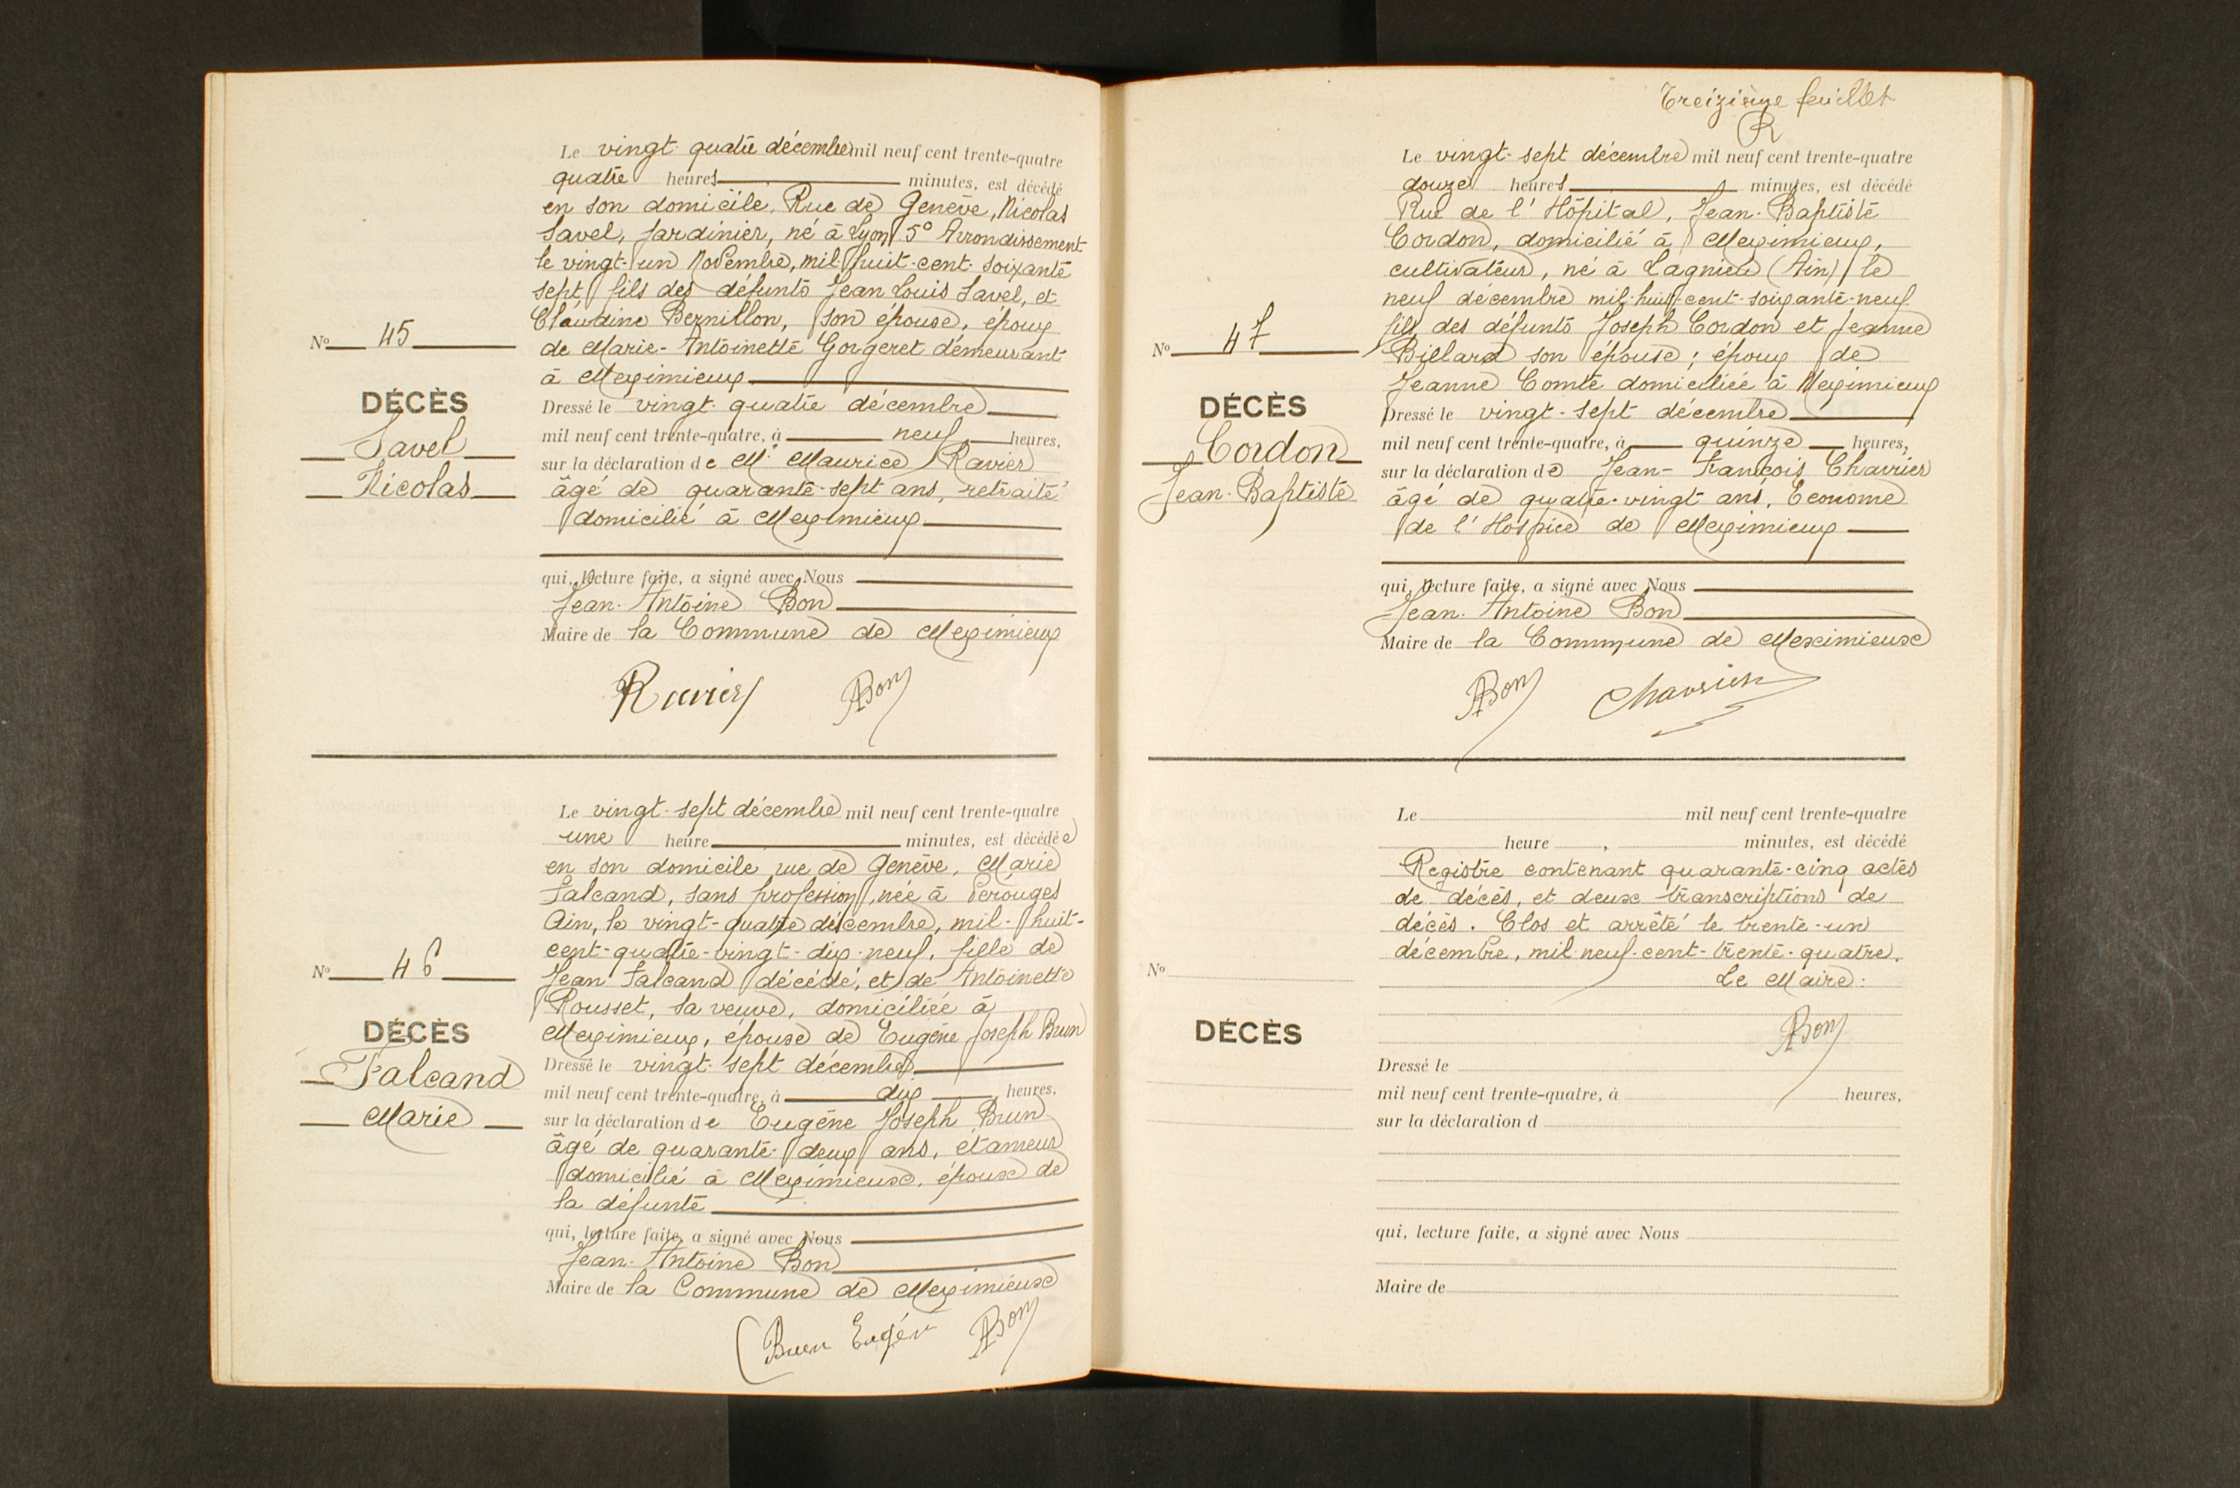 Le vingt-quatre décembre mil neuf cent trente-quatre
quatre heures minutes, est décédé
en son domicile, Rue de Genève, Nicolas
Savel, Jardinier, né à Lyon 5° Arrondissement
le vingt-un Novembre, mil-huit-cent-soixante
sept, fils des défunts Jean Louis Savel, et
Claudine Bernillon, son épouse, époux
de Marie-Antoinette Gorgeret demeurant
à Meximieux
Nº 45
DÉCÈS
Savel
Nicolas
Dressé le vingt-quatre décembre
mil neuf cent trente-quatre, à neuf heures,
sur la déclaration de Mr Maurice Ravier
âgé de quarante-sept ans, retraité
domicilié à Meximieux
qui, lecture faite, a signé avec Nous
Jean-Antoine Bon
Maire de la Commune de Meximieux
Ravier ABon
Le vingt-sept décembre mil neuf cent trente-quatre
une heure minutes, est décédée
en son domicile rue de Genève, Marie
Falcand, sans profession, née à Pérouges
Ain, le vingt-quatre décembre, mil-huit-
cent-quatre-vingt-dix-neuf, fille de
Jean Falcand décédé, et de Antoinette
Rousset, sa veuve, domiciliée à
Meximieux, épouse de Eugène Joseph Brun
Nº 46
DÉCÈS
Falcand
Marie
Dressé le vingt-sept décembre
mil neuf cent trente-quatre, à dix heures,
sur la déclaration de Eugène Joseph Brun
âgé de quarante-deux ans, étameur
domicilié à Meximieux, époux de
la défunte
qui, lecture faite, a signé avec Nous
Jean-Antoine Bon
Maire de la Commune de Meximieux
Brun Eugén ABon
Treizième feuillet
R
Le vingt-sept décembre mil neuf cent trente-quatre
douze heures minutes, est décédé
Rue de l'Hôpital, Jean-Baptiste
Cordon, domicilié à Meximieux,
cultivateur, né à Lagnieu (Ain) le
neuf décembre mil-huit-cent-soixante-neuf
fils des défunts Joseph Cordon et Jeanne
Billard son épouse; époux de
Jeanne Comte domiciliée à Meximieux
Nº 47
DÉCÈS
Cordon
Jean-Baptiste
Dressé le vingt-sept décembre
mil neuf cent trente-quatre, à quinze heures,
sur la déclaration de Jean-François Charrier
âgé de quatre-vingt ans, Econome
de l'Hospice de Meximieux
qui, lecture faite, a signé avec Nous
Jean-Antoine Bon
Maire de la Commune de Meximieux
ABon Charrier
Le mil neuf cent trente-quatre
heure , minutes, est décédé
Registre contenant quarante-cinq actes
de décès, et deux transcriptions de
décès. Clos et arrêté le trente-un
décembre, mil-neuf-cent-trente-quatre.
Le Maire:
ABon
Nº
DÉCÈS
Dressé le
mil neuf cent trente-quatre, à heures,
sur la déclaration d
qui, lecture faite, a signé avec Nous
Maire de